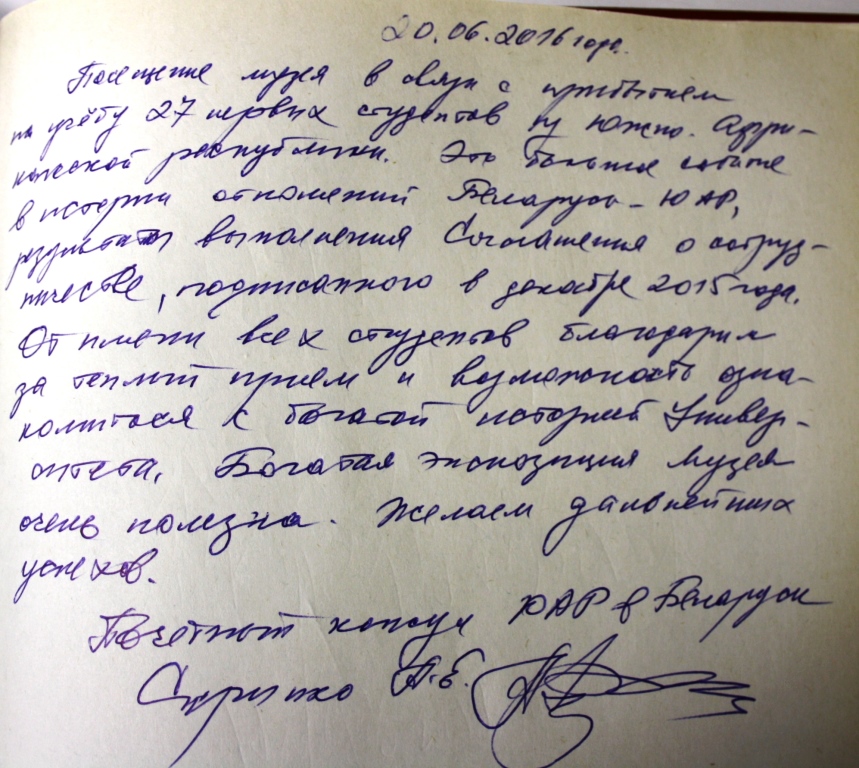 20.06.2016 года.
Посещение музея в связи с прибытием
на учёбу 27 первых студентов из Южно-Афри-
канской республики. Это большое событие
в истории отношений Беларусь - ЮАР,
результаты выполнения Соглашения о сотруд-
ничестве, подписанного в декабре 2015 года.
От имени всех студентов благодарим
за теплый прием и возможность озна-
комиться с богатой историей Универ-
ситета. Богатая экспозиция музея
очень полезна. Желаем дальнейших
успехов.
Почётный консул ЮАР в Беларуси